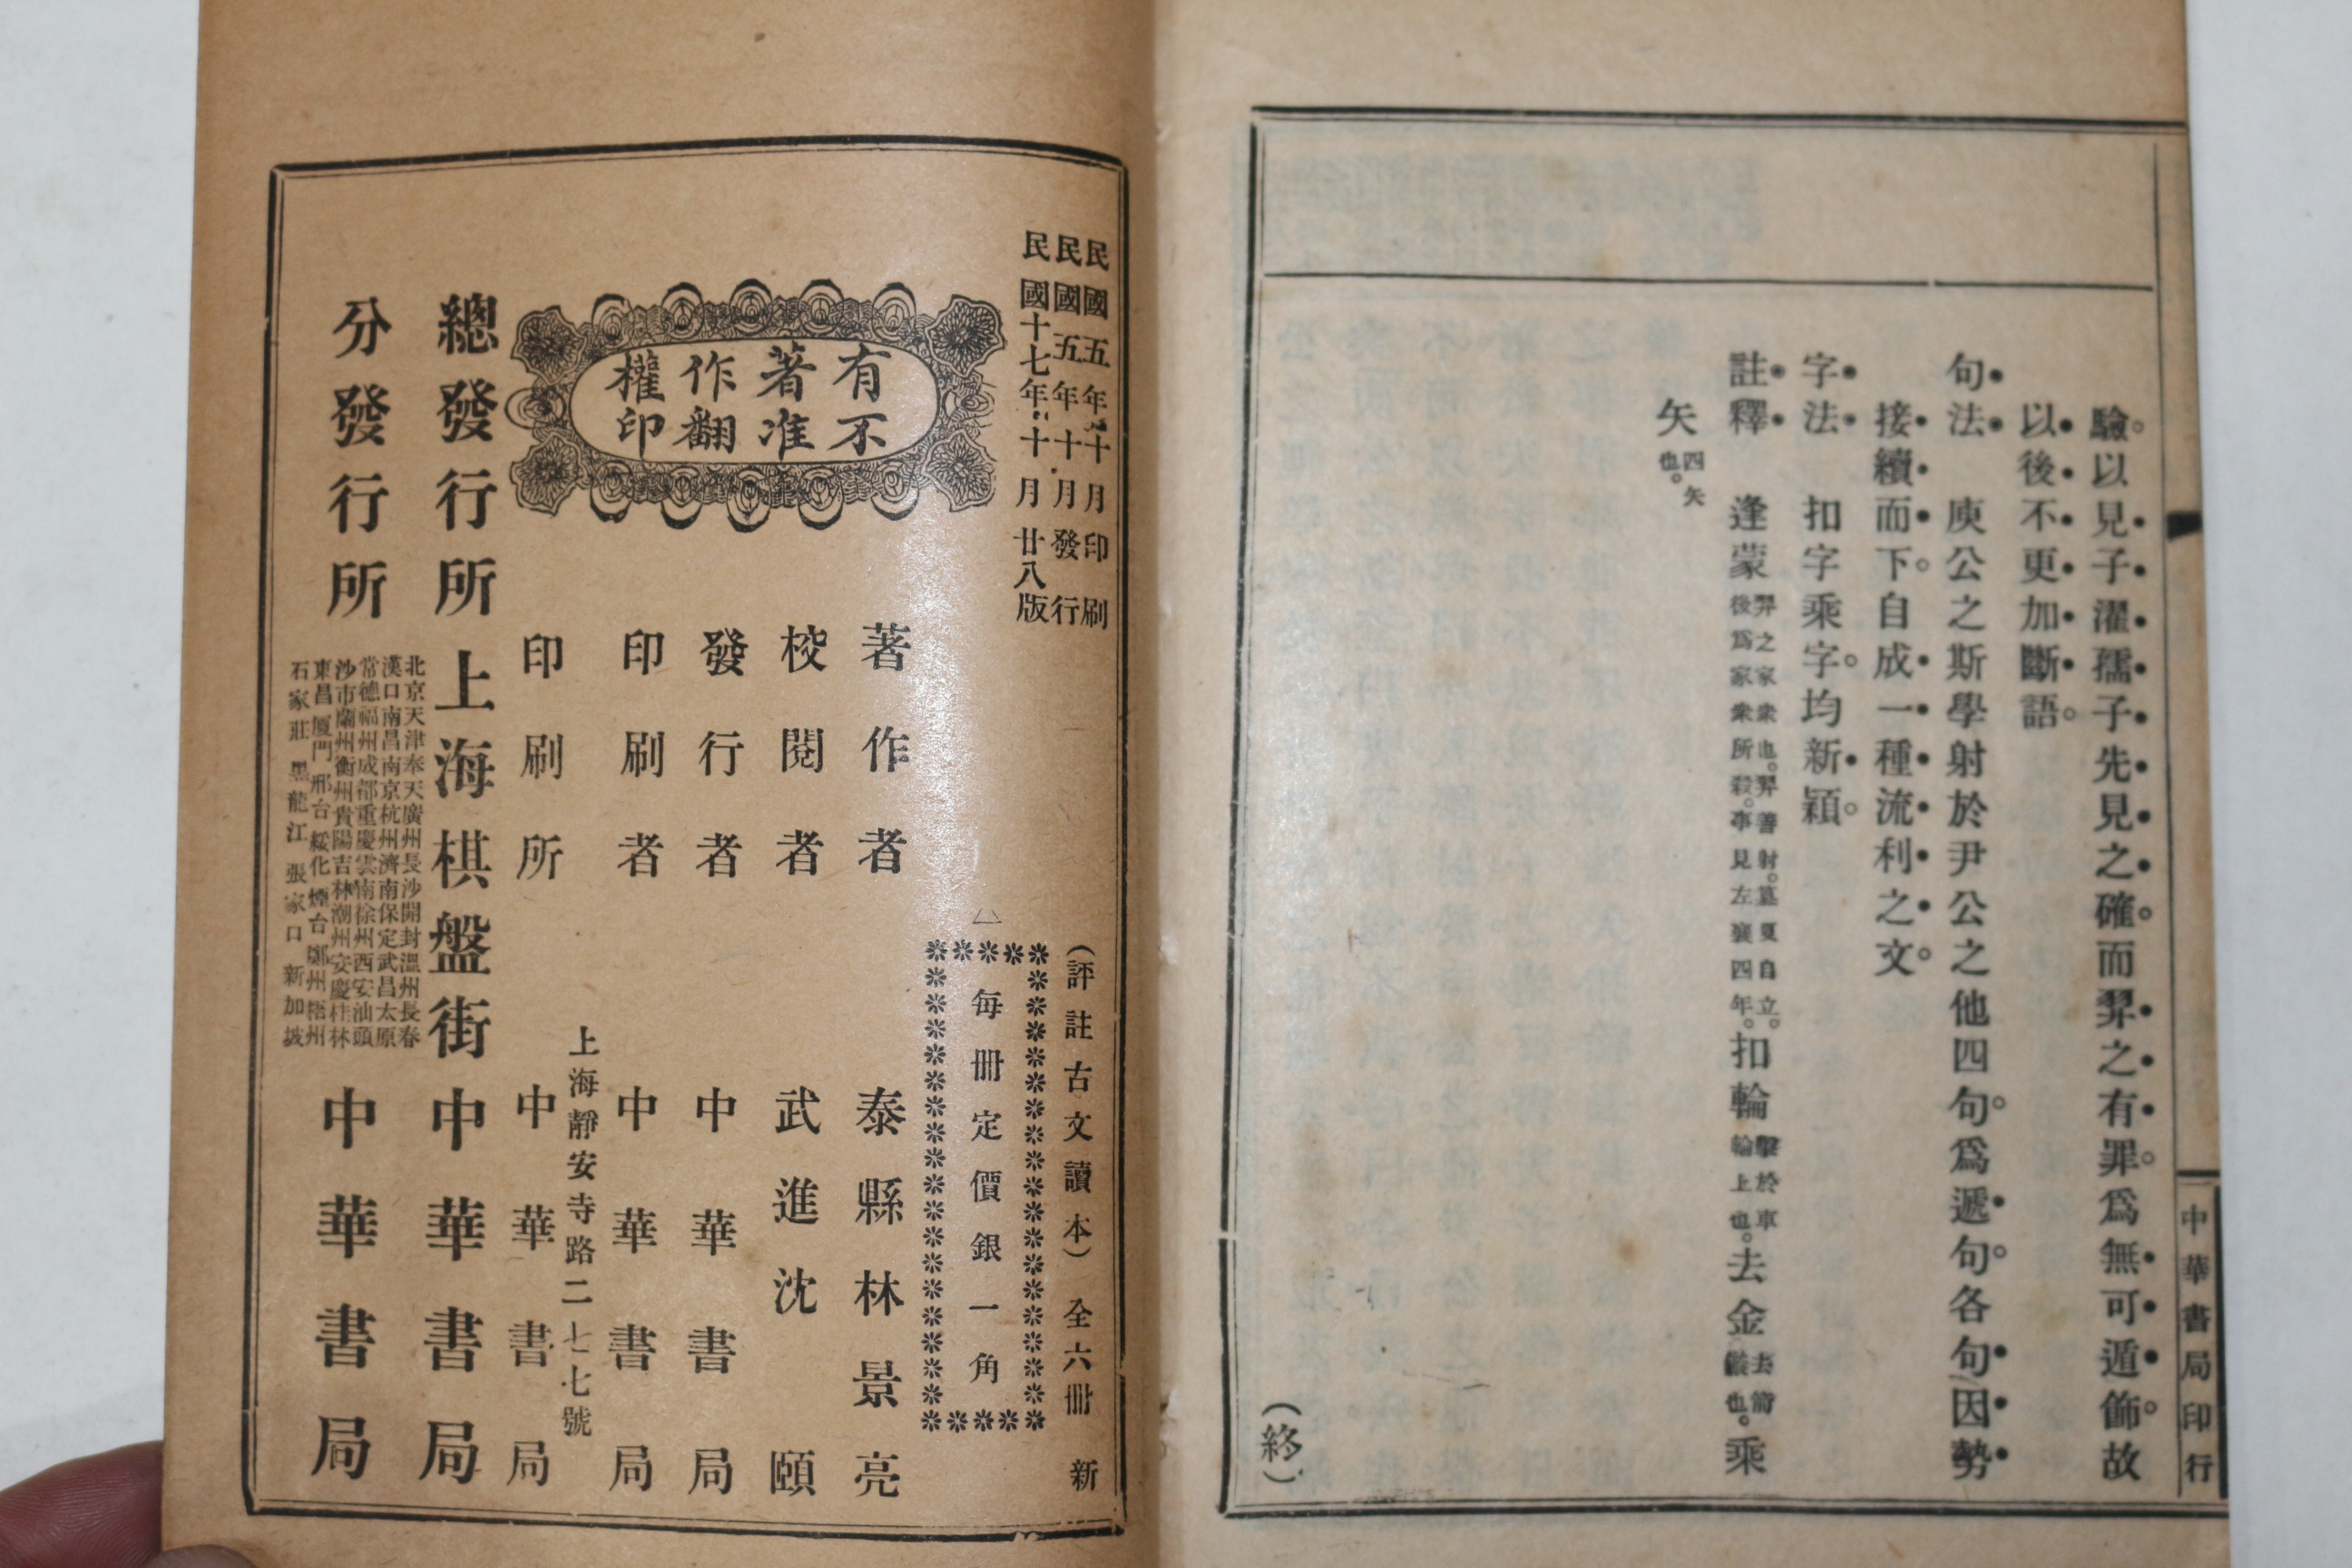 驗。以見子濯孺子先見之確。而羿之有罪。爲無可遁飾。故
以後不更加斷語。
句法　庾公之斯學射於尹公之他四句。爲遞句。各句因勢
接續而下。自成一種流利之文。
字法　扣字乘字。均新穎。
註釋　逢蒙羿之家衆也。羿善射。篡夏自立。後爲家衆所殺。事見左襄四年。扣輪擊於車輪上也。去金去箭鏃也。乘
矢四矢也。
（終）
中華書局印行
民國五年十月印刷
民國五年十月發行
民國十七年十月廿八版
（評註古文讀本）全六冊　新
每冊定價銀一角
有不
著准
作翻
權印
著作者　泰縣林景亮
校閱者　武進沈頤
發行者　中華書局
印刷者　中華書局
上海靜安寺路二七七號
印刷所　中華書局
總發行所　上海棋盤街　中華書局
分發行所　中華書局
北京天津奉天廣州長沙開封溫州長春
漢口南昌南京杭州濟南保定武昌太原
常德福州成都重慶雲南徐州西安汕頭
沙市蘭州衡州貴陽吉林潮州安慶桂林
東昌厦門邢台綏化煙台鄭州梧州
石家莊黑龍江張家口新加坡